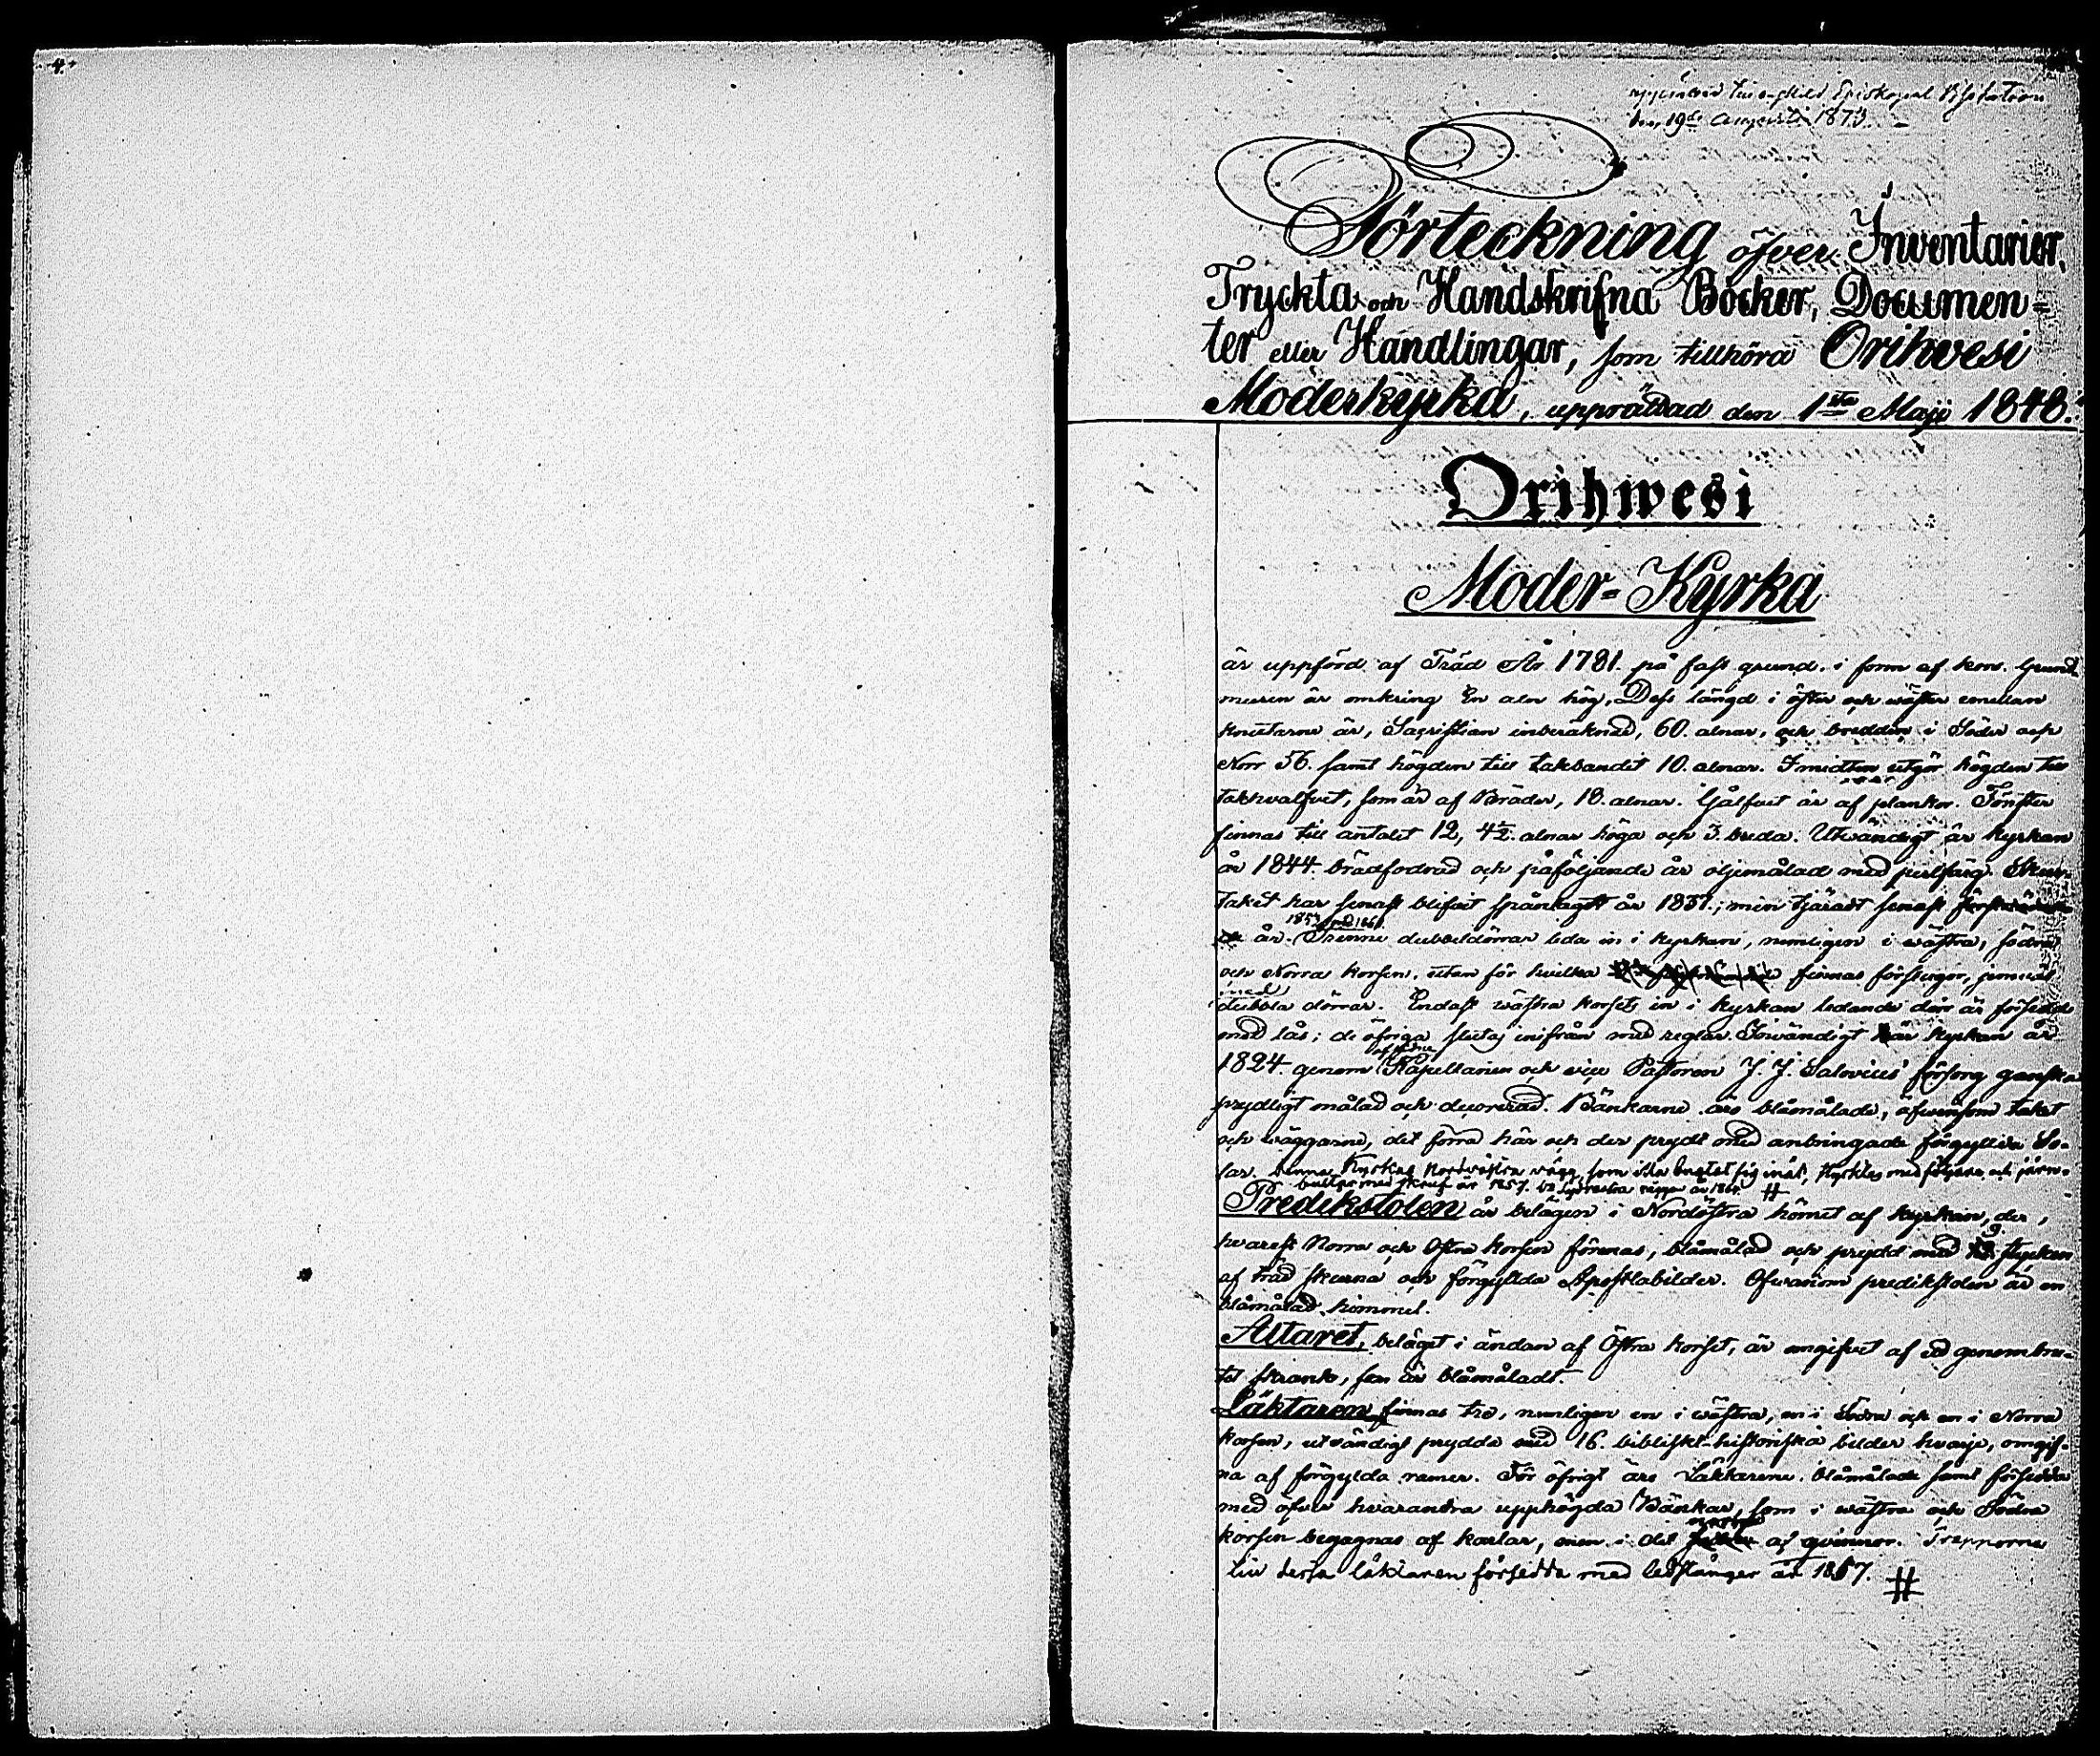 4.
Episkopal Visitation
den 19de Augusti 1873.
Förteckning öfver Inventarier,
Tryckta och Handskrifna Böcker, Documen=
ter eller Handlingar, som tillhöra Orihvesi
Moderkyrka, upprättad den 1sta Maji 1848.
Orihwesi
Moder=Kyrka
är uppförd af Träd År 1781. på fast grund. i form af kors. Grund
muren är omkring En aln hög. Dess längd i öster och wäster emellan
knutarne är, Sacristian inberäknad, 60. alnar, och bredden i Söder och
Norr 56. samt högden till takbandet 10. alnar. I midten utgör högden till
takhvalfvet, som är af Bräder, 18. alnar. Gålfvet är af plankor. Fönster
finnas till antalet 12, 4½. alnar höga och 3. breda. Utwändigt är kyrkan
år 1844. brädfodrad och påföljande år oljemålad med perlfärg.
taket har senast blifvit spånlagdt år 1837.; men tjäradt senast
år. Trenne dubbeldörrar leda in i kyrkan, nemligen i wästra, södra
1857 och 1861.
och Norra korsen, utan för hvilka finnas förstugor, jemväl
med
dubbla dörrar. Endast wästra korsets in i kyrkan ledande dörr är försedd
med lås; de öfriga slutas inifrån med reglar. Inwändigt är kyrkan år
1824. genom Kapellanen och vice Pastoren J. J. Salovius' försorg ganska
afledne
prydligt målad och decorerad. Bänkarne äro blåmålade, äfvensom taket
och wäggarne, det förra här och der prydt med anbringade förgyllda So-
lar. Denna Kyrkas Nordvästra vägg, som icke bugtat sig inåt, stycktes med följare och järn-
bultar med skruf år 1857. #
Predikstolen är belägen i Nordöstra hörnet af kyrkan, der,
hvarest Norra och Östra korsen förenas, blåmålad och prydd med 9. stycken
af träd skurna och förgyllda Apostlabilder. Ofwanom predikstolen är en
blåmålad himmel.
Altaret, beläget i ändan af Östra korset, är omgifvet af ett genombru-
tet skrank, som är blåmåladt.
Läktaren finnas tre, nemligen en i wästra, en i Södra och en i Norra
korsen, utvändigt prydda med 16. bibliskt-historiska bilder hvarje, omgif-
na af förgyllda ramer. För öfrigt äro Läktarene blåmålade samt försedda
med öfver hvarandra upphögda Bänkar, som i wästra och Södra
korsen begagnas af karlar, men i det norra af qvinnor. Trapporne
till dessa läktaren försedda med ledstänger år 1857. #